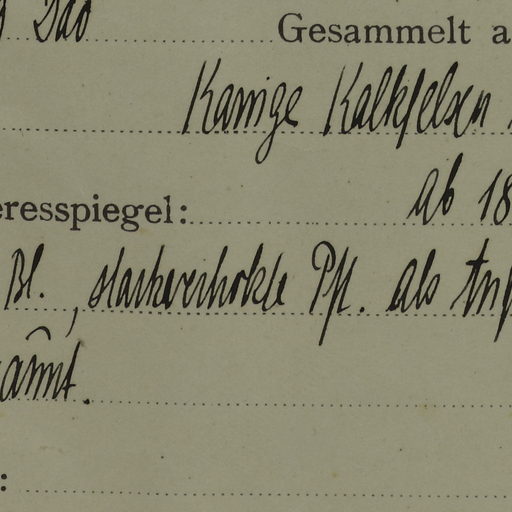 Dao Gesammelt a
Karrige Kalkfelsen
eresspiegel: ab 18
Bl., starkverholzte Pfl. als
annt.
: